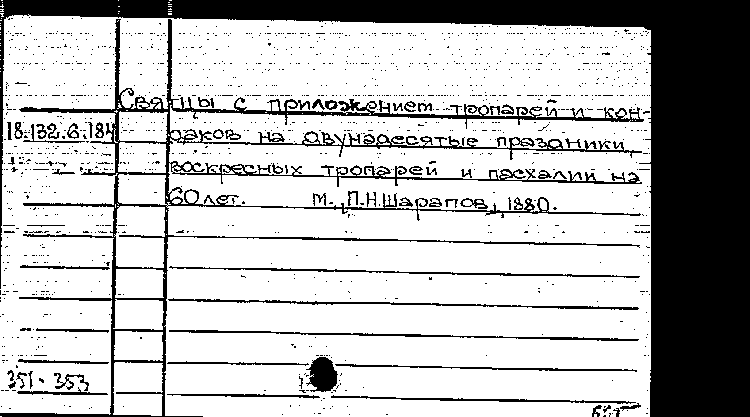 Святцы с приложением тропарей и кон-
18.132.6.184 даков на двунадесятые праздники,
воскресных тропарей и пасхалии на
60 лет. М., П.Н.Шарапов, 1880.
351-353